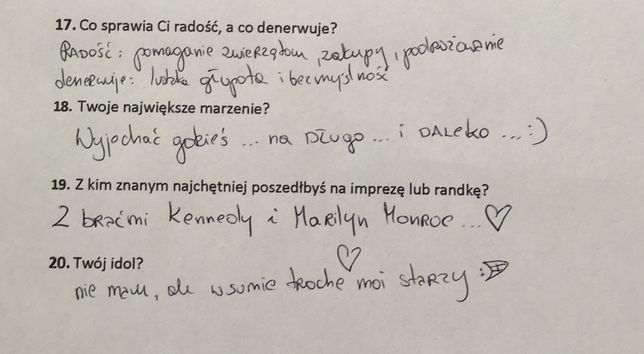 17. Co sprawia Ci radość, a co denerwuje?
RADOŚĆ: pomaganie zwierzętom, zakupy, podróżowanie
denerwuje: ludzka głupota i bezmyślność
18. Twoje największe marzenie?
Wyjechać gdzieś ... na DŁUgo ... i DALEKO ... :)
19. Z kim znanym najchętniej poszedłbyś na imprezę lub randkę?
Z braćmi Kennedy i MARilyn MONROE ... ♡
20. Twój idol?
nie mam, ale w sumie trochę moi staRZy :D